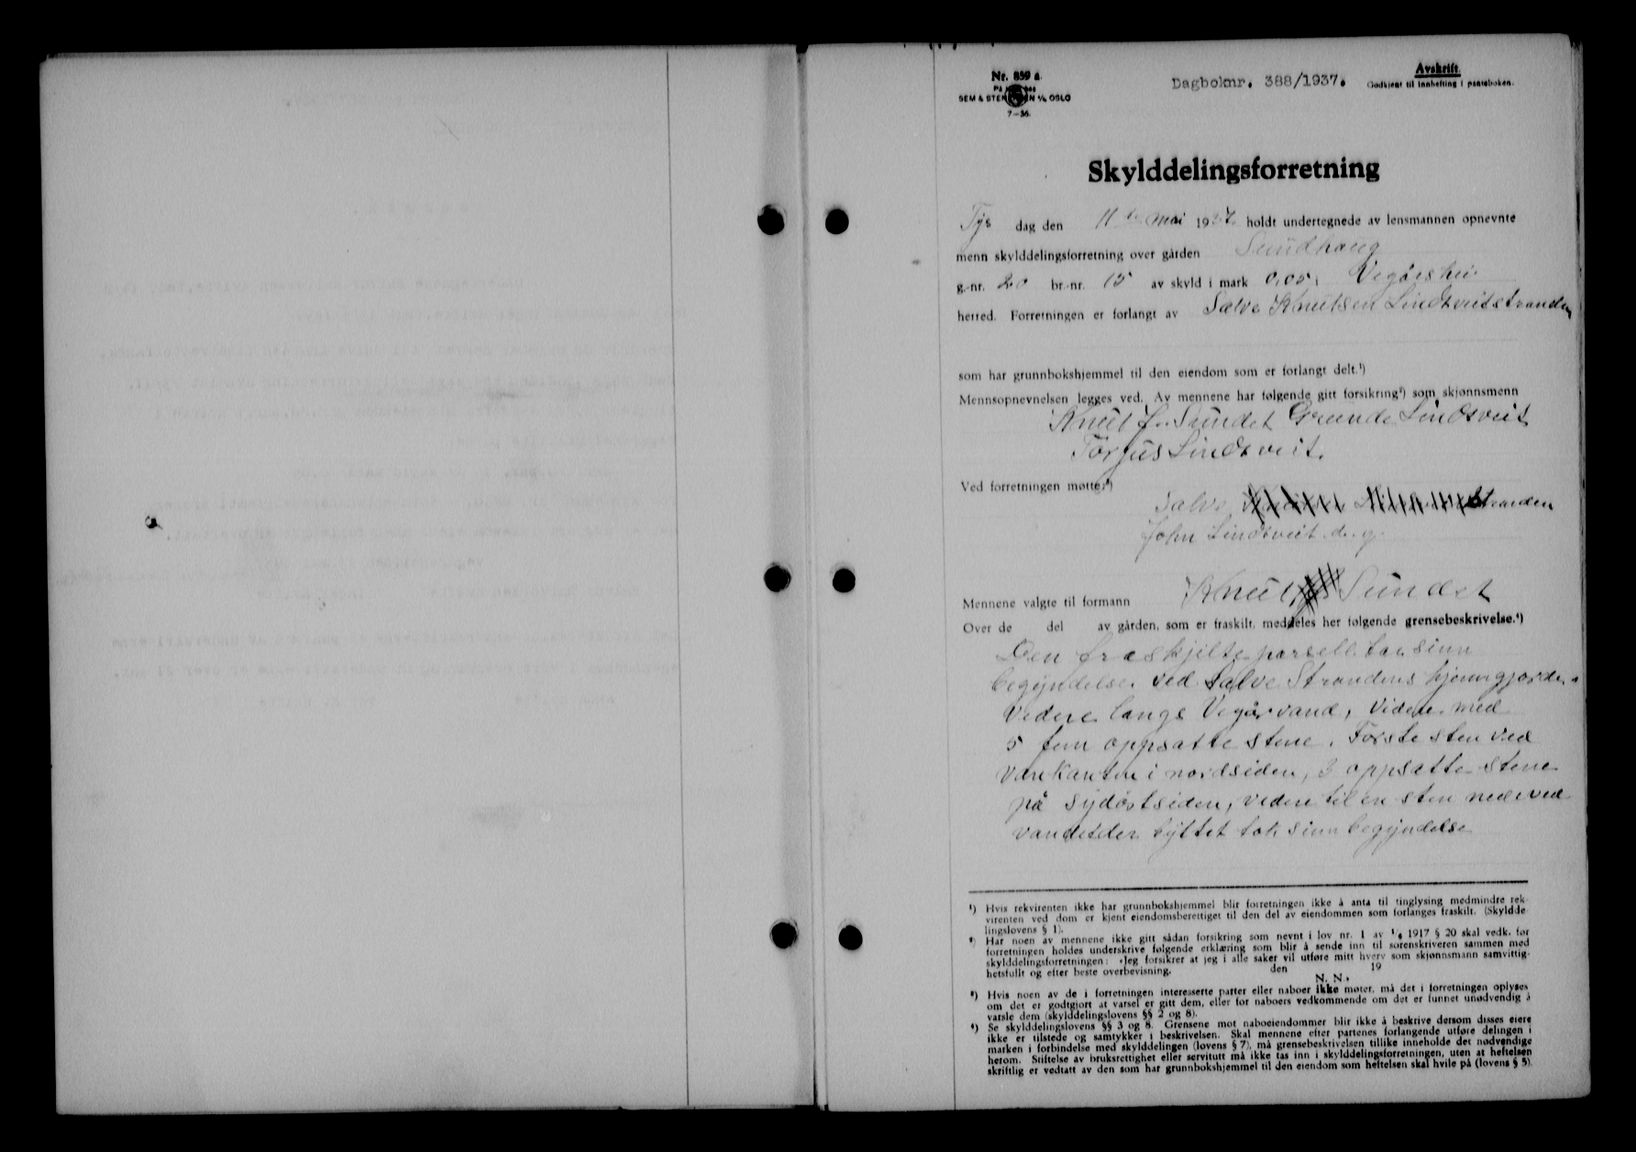 Nr. 859 a.
SEM & STENERSEN A/S OSLO
7-36.
Dagboknr. 388/1937.
Avskrift.
Godkjent til innhefting i panteboken.
Skylddelingsforretning
Tys dag den 11te mai 1937 holdt undertegnede av lensmannen opnevnte
menn skylddelingsforretning over gården Sundhaug
g.-nr. 20 br.-nr. 15 av skyld i mark 0,05, Vegårshei
herred. Forretningen er forlangt av Salve Knutsen Lindtveitstranden
som har grunnbokshjemmel til den eiendom som er forlangt delt.¹)
Mennsopnevnelsen legges ved. Av mennene har følgende gitt forsikring²) som skjønnsmenn
Knut J. Sundet Grunde Lindtveit
Torjus Lindtveit.
Ved forretningen møtte:³)
Salve Stranden
John Lindtveit d. y.
Mennene valgte til formann Knut Sundet
Over de del av gården, som er fraskilt, meddeles her følgende grensebeskrivelse.⁴)
Den fraskjilte parsell tar sinn
begyndelse ved Salve Strandens hjemmgjorde
videre langs Vegårvand, videre med
5 fem oppsatte stene. Første sten ved
vankanten i nordsiden, 3 oppsatte stene
på sydøstsiden, videre til en sten nede ved
vandet der byttet tok sinn begyndelse
¹) Hvis rekvirenten ikke har grunnbokshjemmel blir forretningen ikke å anta til tinglysing medmindre rek-
virenten ved dom er kjent eiendomsberettiget til den del av eiendommen som forlanges fraskilt. (Skyldde-
lingslovens § 1).
²) Har noen av mennene ikke gitt sådan forsikring som nevnt i lov nr. 1 av 1/6 1917 § 20 skal vedk. før
forretningen holdes underskrive følgende erklæring som blir å sende inn til sorenskriveren sammen med
skylddelingsforretningen: «Jeg forsikrer at jeg i alle saker vil utføre mitt hverv som skjønnsmann samvittig-
hetsfullt og efter beste overbevisning. den 19
N. N.»
³) Hvis noen av de i forretningen interesserte parter eller naboer ikke møter, må det i forretningen oplyses
om det er godtgjort at varsel er gitt dem, eller for naboers vedkommende om det er funnet unødvendig å
varsle dem (skylddelingslovens §§ 2 og 8).
⁴) Se skylddelingslovens §§ 3 og 8. Grensene mot naboeiendommer blir ikke å beskrive dersom disses eiere
ikke er tilstede og samtykker i beskrivelsen. Skal mennene efter partenes forlangende utføre delingen i
marken i forbindelse med skylddelingen (lovens § 7), må grensebeskrivelsen tillike inneholde det nødvendige
herom. Stiftelse av bruksrettighet eller servitutt må ikke tas inn i skylddelingsforretningen, uten at heftelsen
skriftlig er vedtatt av den som har grunnbokshjemmel til den eiendom som heftelsen skal hvile på (lovens § 5).